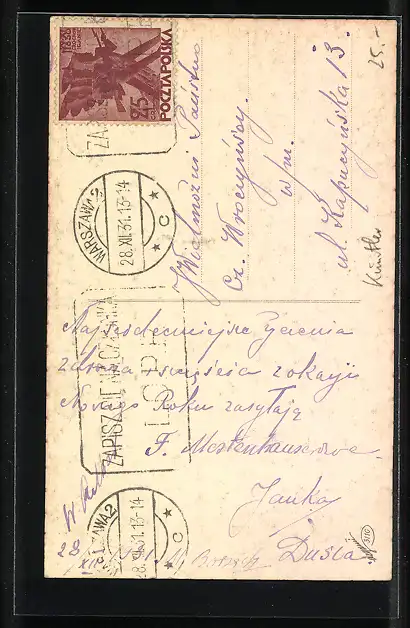 25 GR
POCZTA POLSKA
WARSZAWA 2
28.XII.31.13-14
C
ZAPISZ SIĘ NA CZŁONKA
L.O.P.P.
Wielmożni Państwo
Cz. Wroczyńscy
w/m.
ul. Kapucyńska 13.
25.-
Künstler
Najserdeczniejsze życzenia
zdrowia i szczęścia z okazji
Nowego Roku zasyłają
F. Mostenhauserowe
Janka
Dusia
28
XII
WARSZAWA 2
28.XII.31.13-14
C